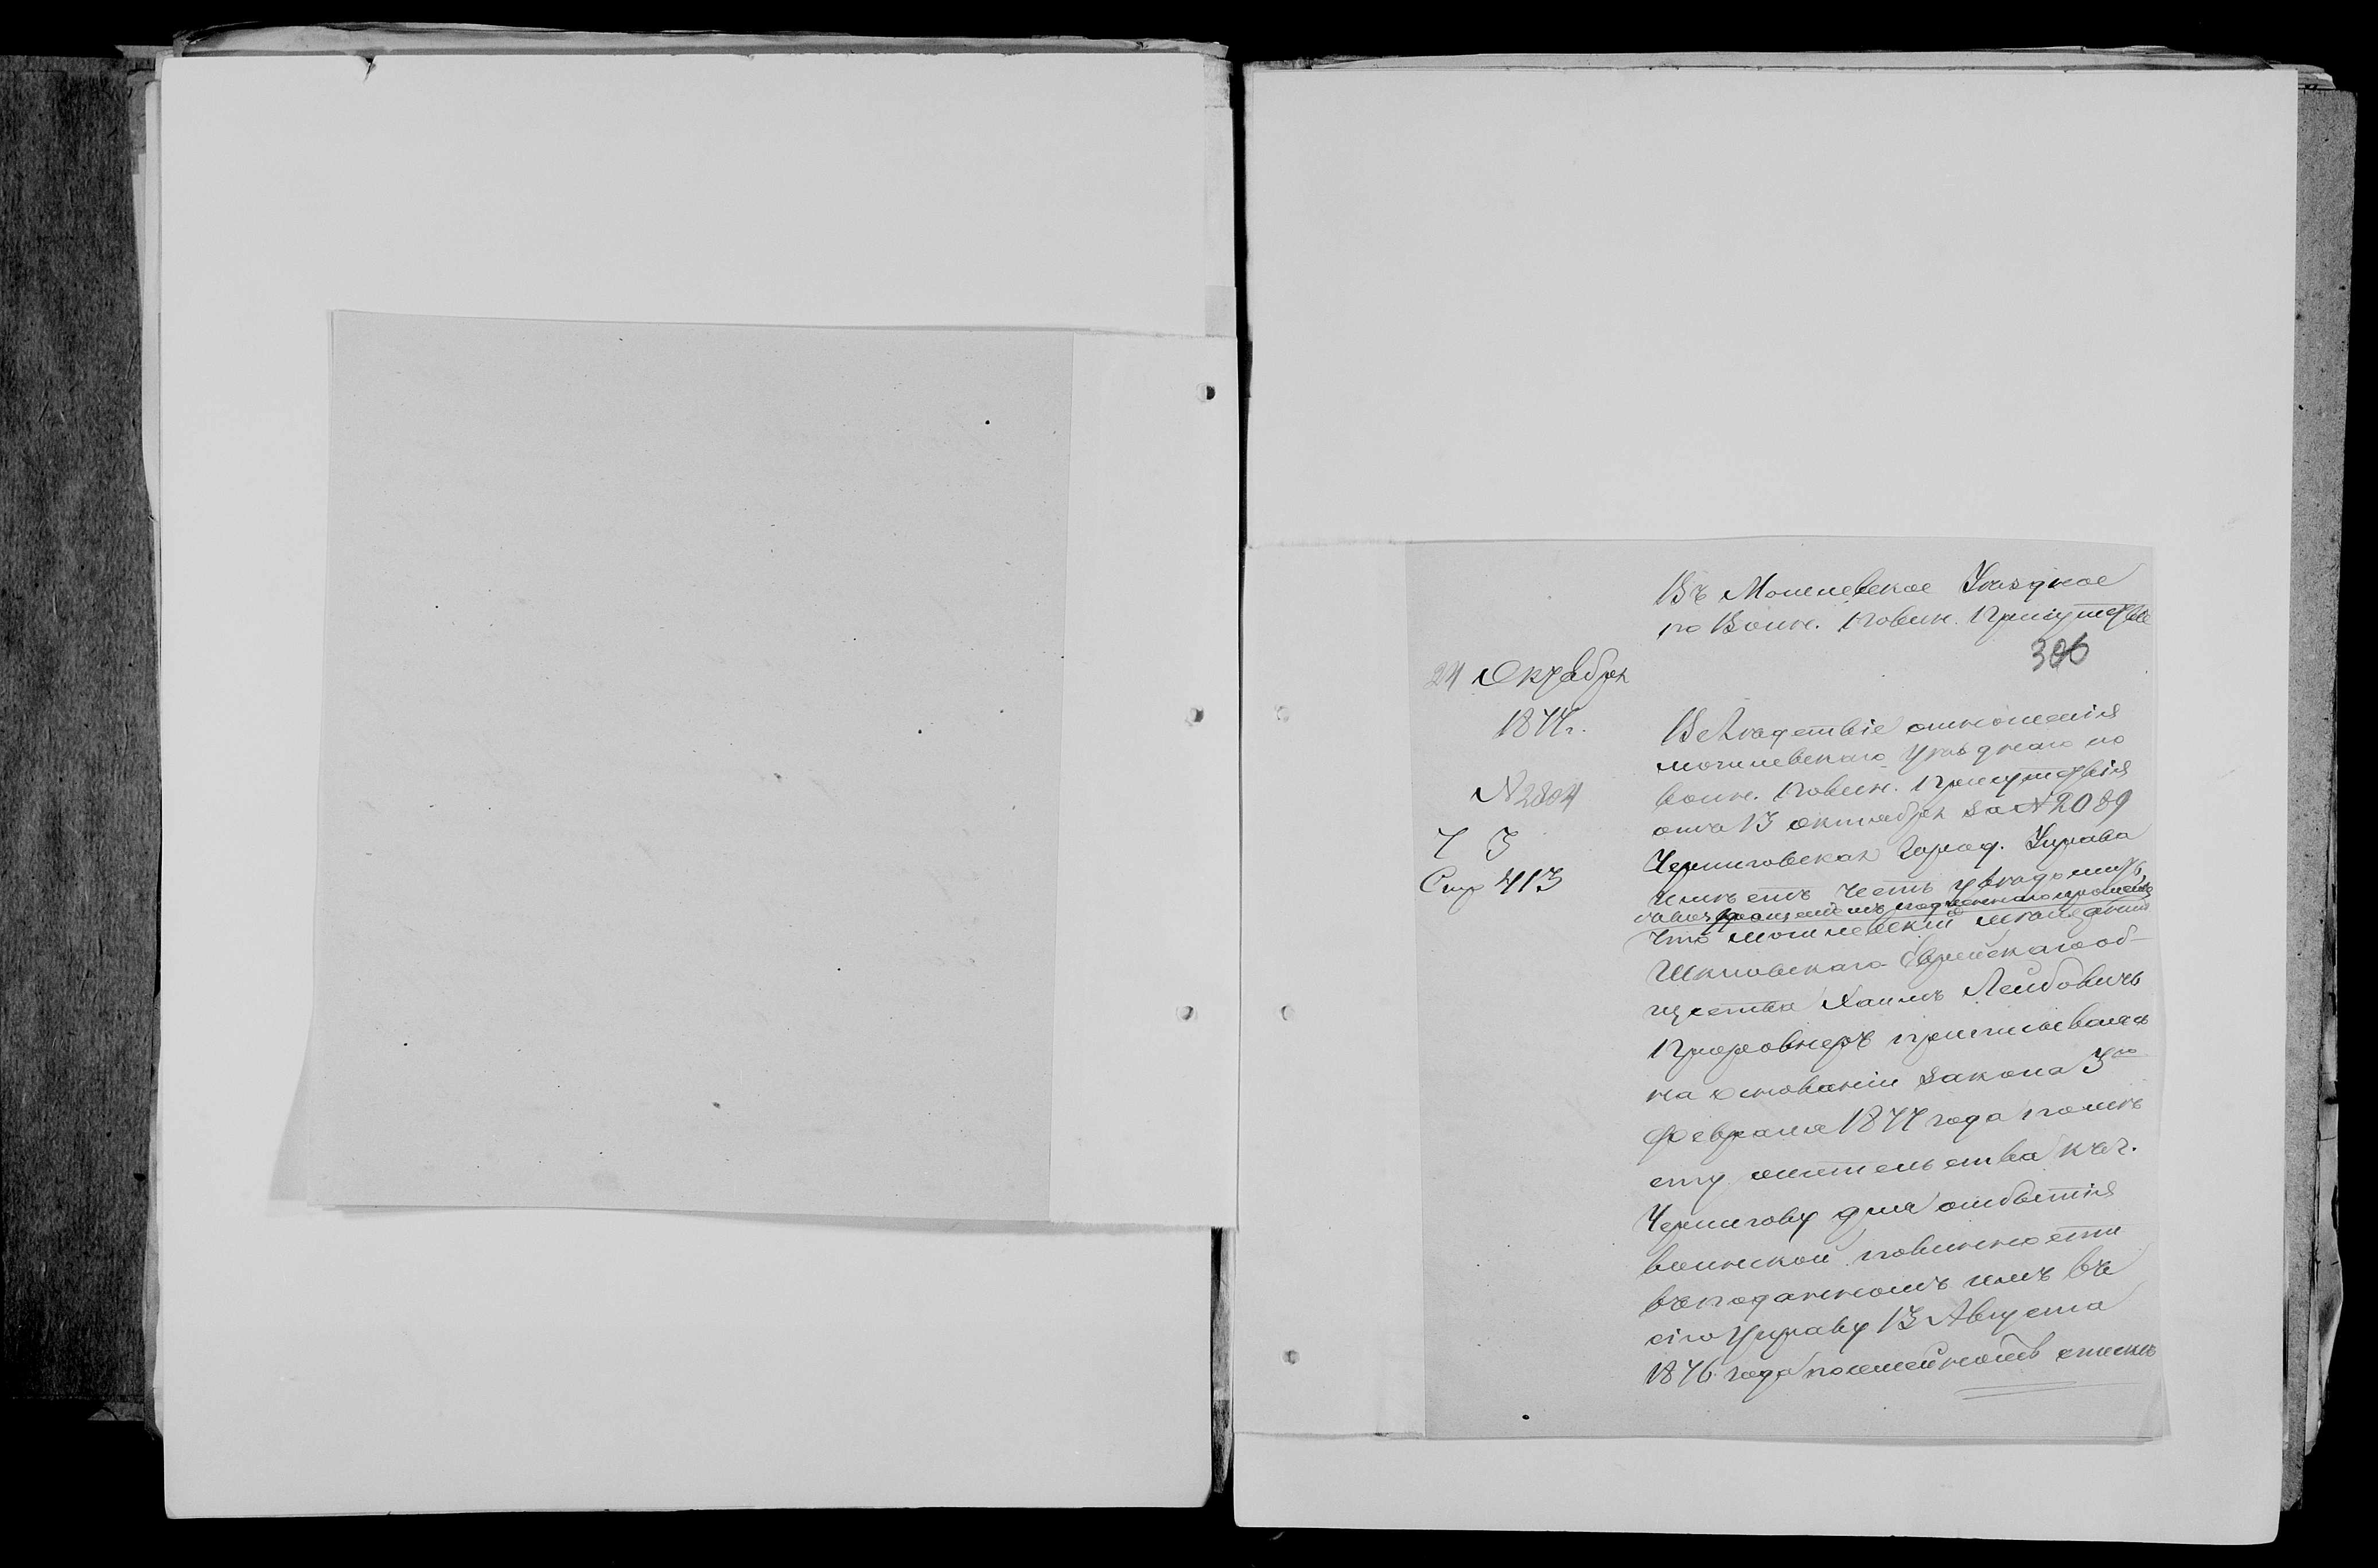 Въ Могилевское Уѣздное
по Воин. Повин. Присутствіе
306
24 Октября
1877г.
N 2804
Ч 3
Стр 413
Вслѣдствіе отношенія
могилевскаго уѣзднаго по
воин. повин. присутствія
отъ 13 октября за N 2089
Черниговская Город. Управа
имѣетъ честь увѣдомить,
что могилевскій мѣщанинъ
Шкловскаго Еврейскаго об-
щества Хаимъ Лейбовичъ
приписывался
на основаніи закона 3го
февраля 1877 года по мѣ
сту жительства къ г.
Чернигову для отбытія
воинской повинности
въ поданномъ имъ въ
сію Управу 13 Августа
1876 года посемейномъ спискѣ